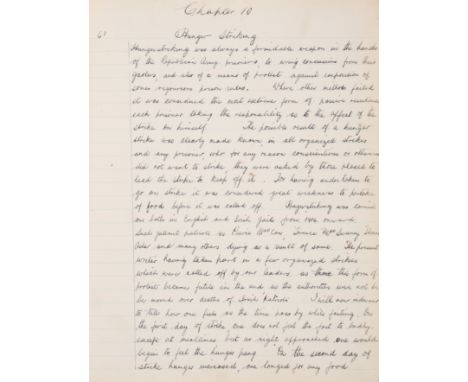 Chapter 10
61 Hunger Striking
Hunger striking was always a formidable weapon in the hands
of the Republican Army prisoners, to wring concessions from their
gaolers, and also of a means of protest against imposition of
some rigourous prison rules. Where other methods failed
it was considered the most extreme form of passive resistance
each prisoner taking the responsibility as to the effect of the
strike on himself. The possible result of a hunger
strike was clearly made known, in all organized strikes
and any prisoner who for any reason conscientious or otherwise
did not want to strike they were asked by those placed to
lead the strike to keep off it. For having undertaken to
go on strike it was considered great weakness to partake
of food before it was called off. Hunger striking was carried
on both in English and Irish Jails from 1916 onward.
Such patriots as Terence MacSwiney
and many others dying as a result of same. The present
writer having taken part in a few organized strikes
which were called off by our leaders, as this form of
protest became futile in the end as the authorities would not be
be moved over deaths of Irish Patriots. I will now endeavour
to tell how one feels as the time pass by while fasting. On
the first day of strike one does not feel the fast to badly,
except at mealtimes but as night approached one would
begin to feel the hunger pang. On the second day of
strike hunger increased, one longed for any food